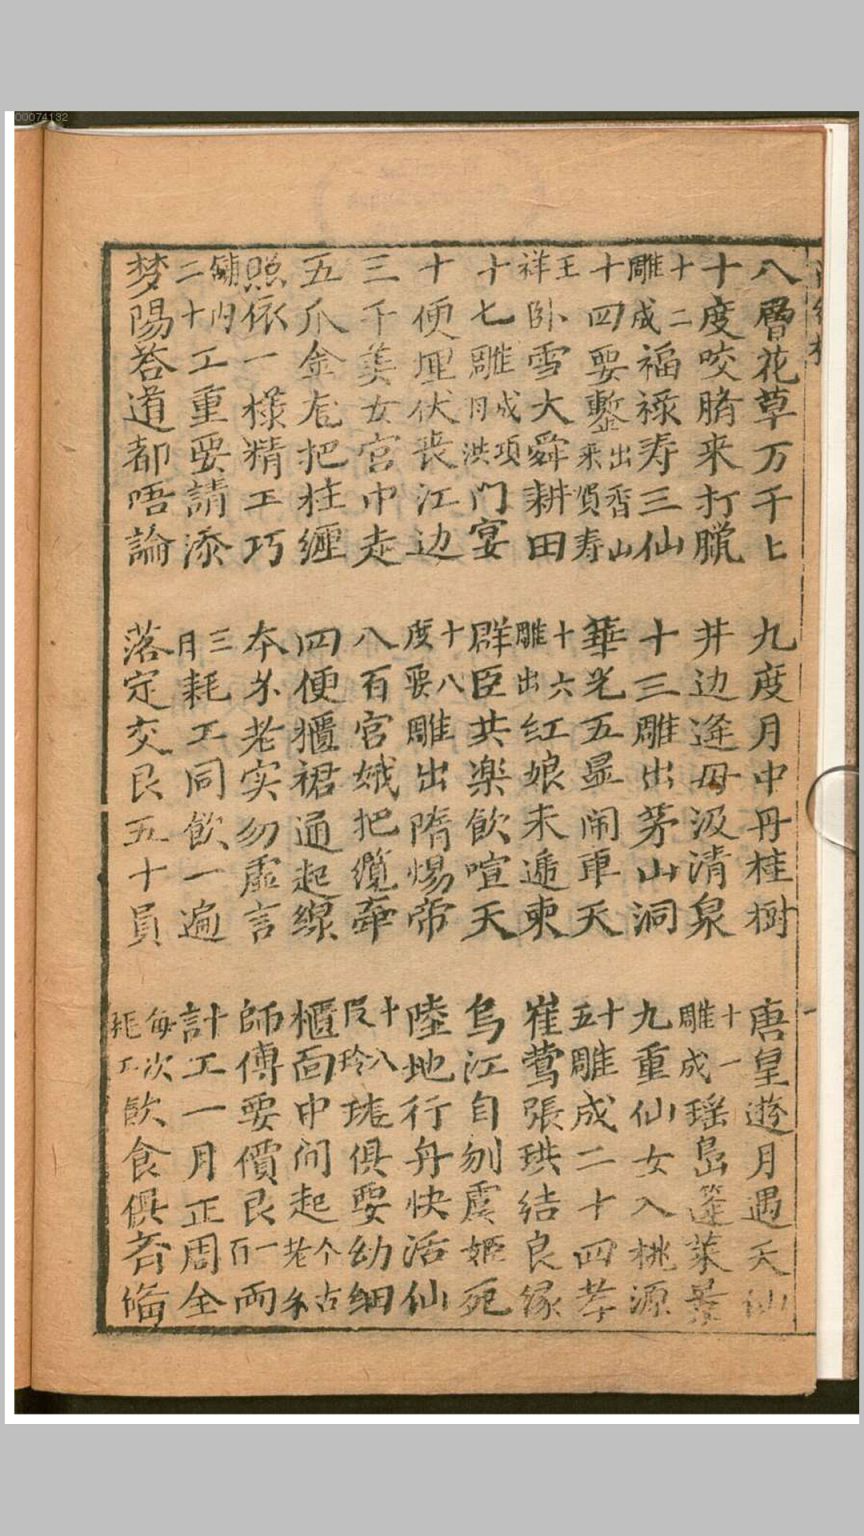 00074132
八層花草万千匕　九度月中丹桂樹　唐皇遊月遇天仙
十度咬臍来打臘　井边逢毋汲清泉　十一雕成瑶島蓬莱景
十二雕成福禄寿三仙　十三雕出茅山洞　九重仙女入桃源
十四要鑿出香山来賀寿　華光五显闹車天　十五雕成二十四孝
王祥卧雪大舜耕田　十六雕出红娘未递柬　崔莺張珙结良缘
十七雕成项月洪门宴　群臣共楽飲喧天　烏江自刎虞姬死
十便埋伏丧江边　十八度要雕出隋惕帝　陸地行舟快活仙
三千美女宫中走　八百官娥把缆牵　十八叚玲珑俱要幼细
五爪金龙把柱缠　四便櫃裙通起線　櫃面中间起个古老糸
照依一様精工巧　夲朩老实勿虚言　師傅要價艮一百両
舖内二十工重要請添　三月耗工同飲一遍　計工一月正周全
梦陽荅道都唔論　落定交艮五十員　每次耗工飲食俱斉偹